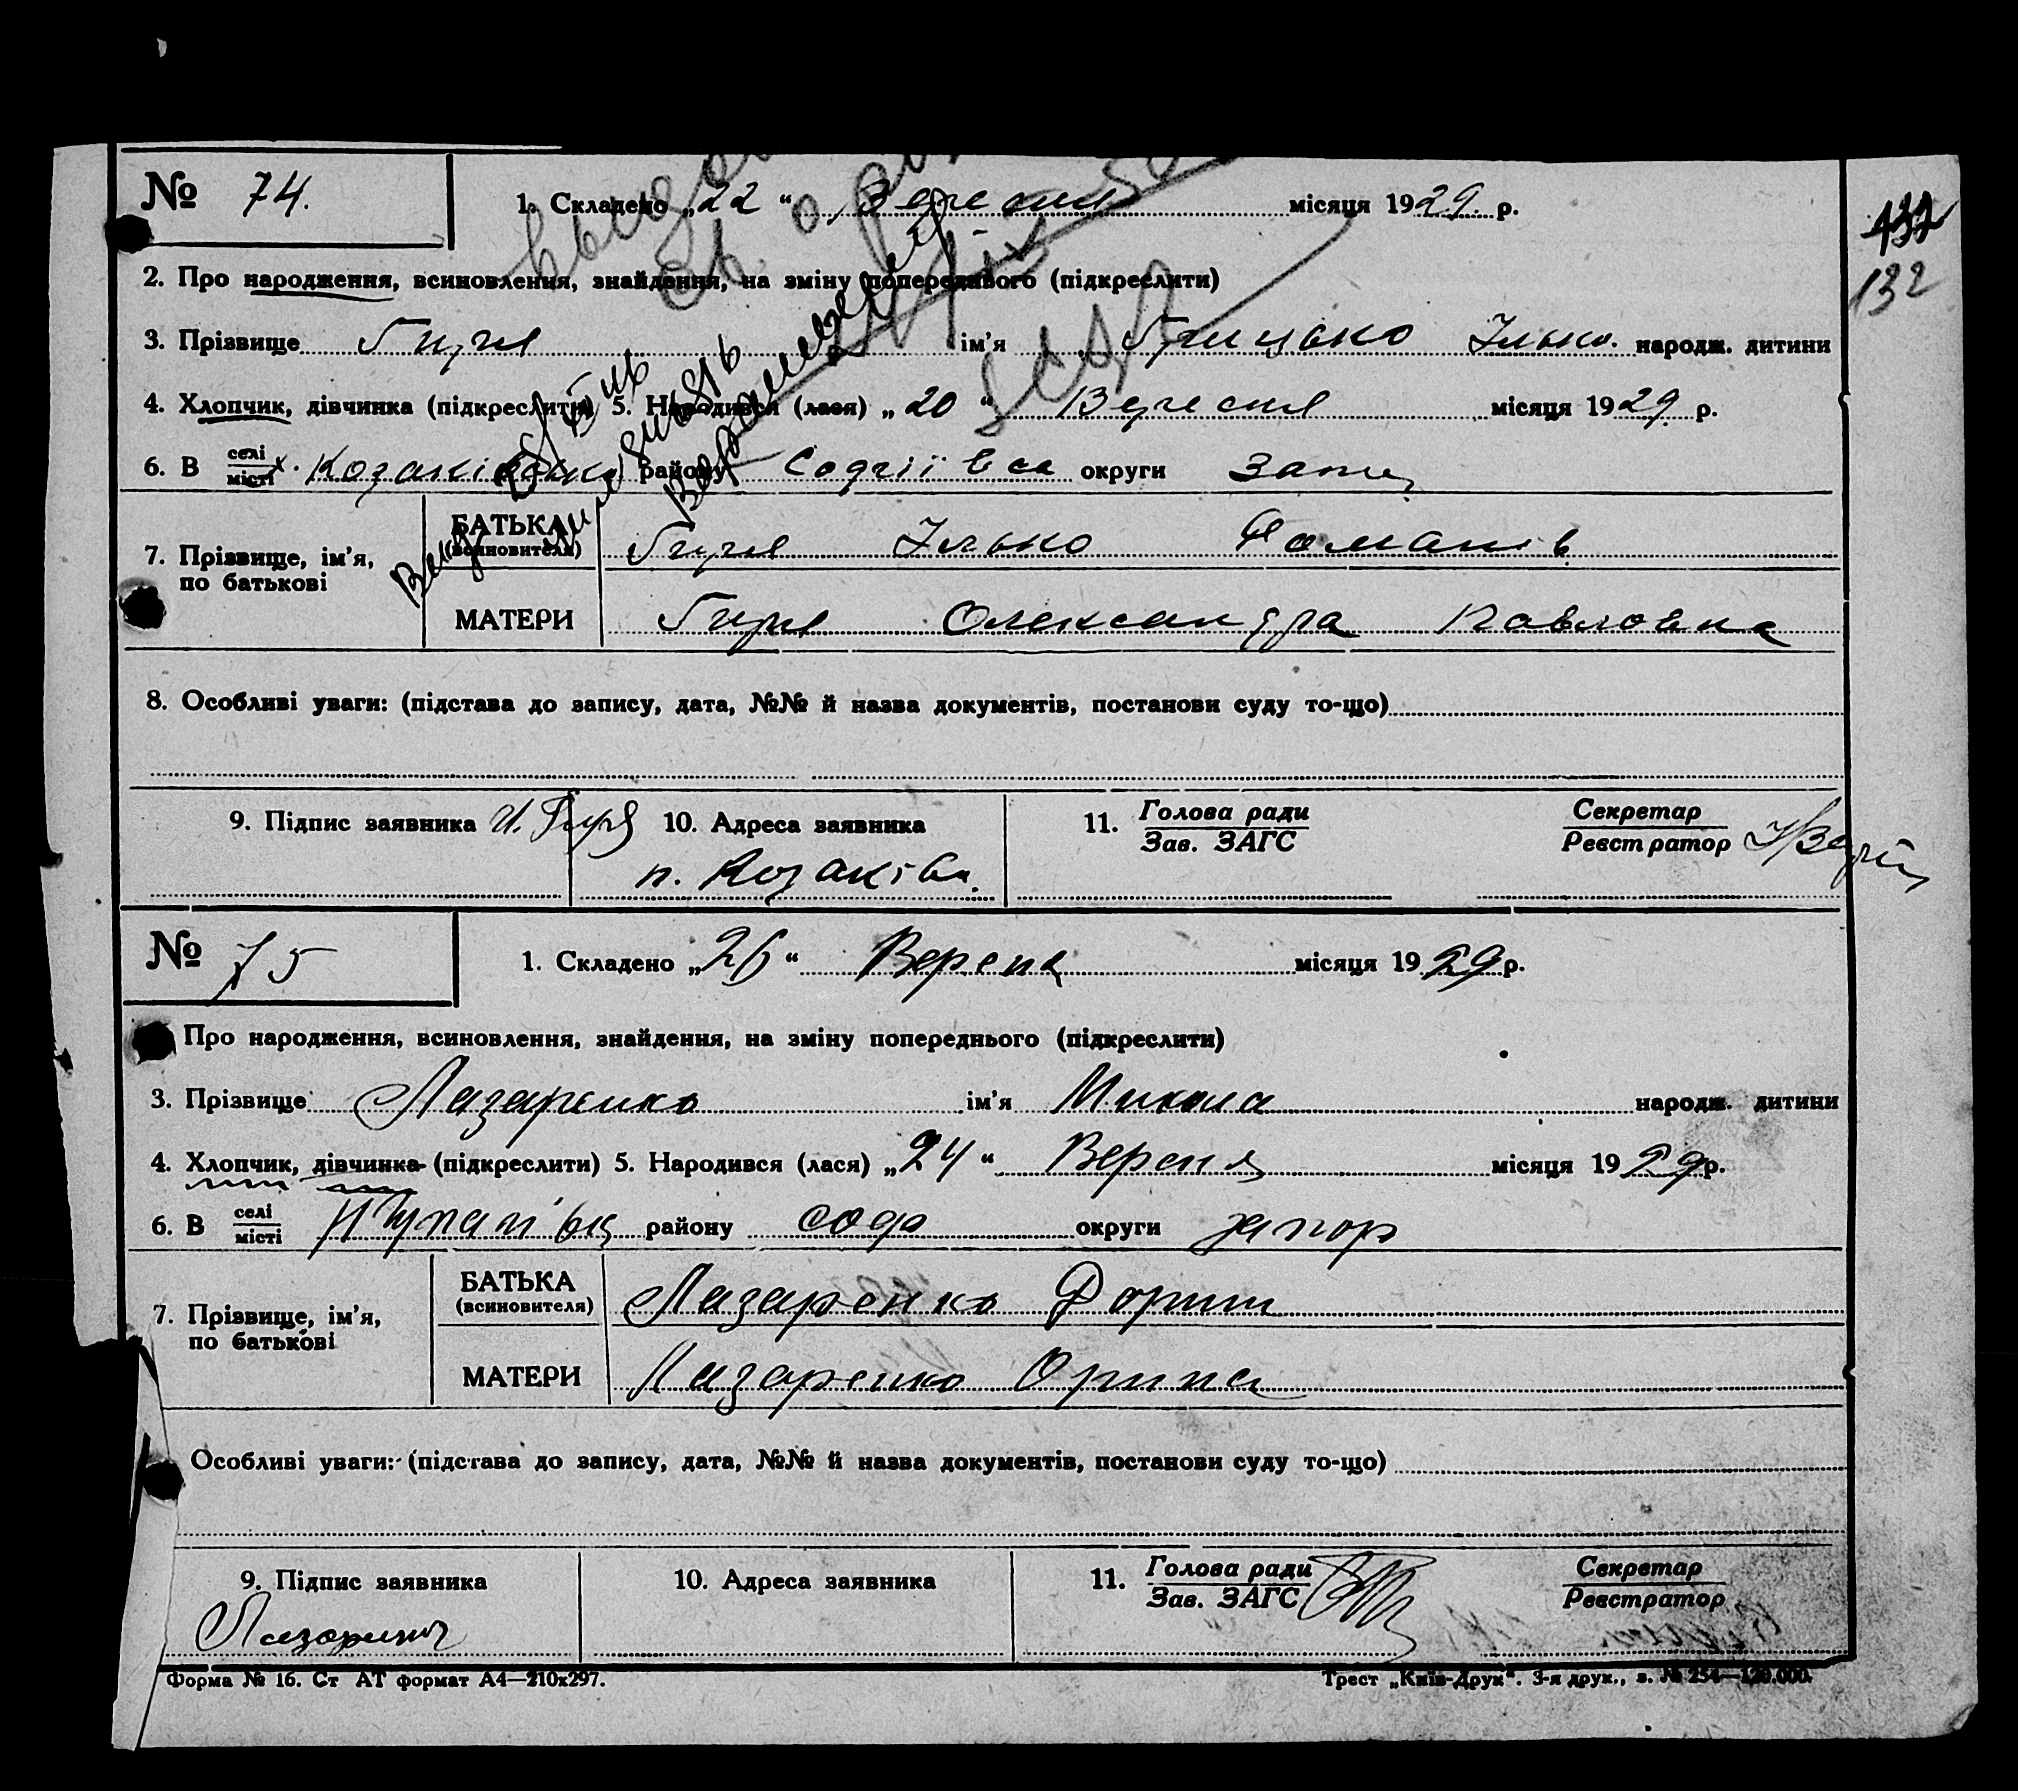 № 74. 1. Складено „22“ Вересня місяця 1929 р.
132
132
2. Про народження, всиновлення, знайдення, на зміну попереднього (підкреслити)
3. Прізвище Гиря ім'я Грицько Ілько. народж. дитини
4. Хлопчик, дівчинка (підкреслити) 5. Народився (лася) „20“ Вересня місяця 1929 р.
6. В селі місті х. Козаківка району Софіївса округи Запор
7. Прізвище, ім'я, по батькові
БАТЬКА (всиновителя) Гиря Ілько Романів
МАТЕРИ Гиря Олександра Павловна
8. Особливі уваги: (підстава до запису, дата, №№ й назва документів, постанови суду то-що)
9. Підпис заявника И. Гиря 10. Адреса заявника 11. Голова ради Зав. ЗАГС Секретар Реєстратор
п. Козаківа.
№ 75 1. Складено „26“ Верена місяця 1929 р.
Про народження, всиновлення, знайдення, на зміну попереднього (підкреслити)
3. Прізвище Лазаренко ім'я Микола народж. дитини
4. Хлопчик, дівчинка (підкреслити) 5. Народився (лася) „24“ Вереня місяця 1929 р.
6. В селі місті району Соф округи запор
7. Прізвище, ім'я, по батькові
БАТЬКА (всиновителя) Лазаренко
МАТЕРИ Лазаренко Орина
Особливі уваги: (підстава до запису, дата, №№ й назва документів, постанови суду то-що)
9. Підпис заявника 10. Адреса заявника 11. Голова ради Зав. ЗАГС Секретар Реєстратор
Форма № 16. Ст АТ формат А4—210х297. Трест „Київ-Друк“. 3-я друк., з. № 254—120.000.